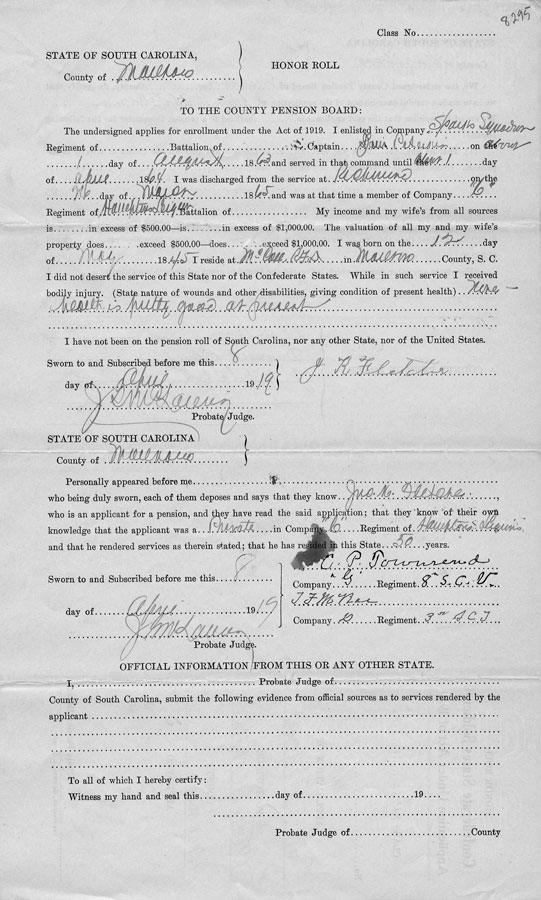 8295
Class No.
STATE OF SOUTH CAROLINA,
County of Marlboro
HONOR ROLL
TO THE COUNTY PENSION BOARD:
The undersigned applies for enrollment under the Act of 1919. I enlisted in Company Sparks Squadron
Regiment of Battalion of Captain on
1 day of August 1863 and served in that command until 1 day
of April 1864. I was discharged from the service at Richmond on the
day of March 1865 and was at that time a member of Company
Regiment of Hampton Legion Battalion of My income and my wife's from all sources
is in excess of $500.00—is in excess of $1,000.00. The valuation of all my and my wife's
property does exceed $500.00—does exceed $1,000.00. I was born on the 12 day
of May 1845 I reside at McColl in Marlboro County, S. C.
I did not desert the service of this State nor of the Confederate States. While in such service I received
bodily injury. (State nature of wounds and other disabilities, giving condition of present health) None —
health is pretty good at present
I have not been on the pension roll of South Carolina, nor any other State, nor of the United States.
Sworn to and Subscribed before me this 8
day of April 1919
J K Fletcher
Probate Judge.
STATE OF SOUTH CAROLINA
County of Marlboro
Personally appeared before me
who being duly sworn, each of them deposes and says that they know Jno. K. Fletcher
who is an applicant for a pension, and they have read the said application; that they know of their own
knowledge that the applicant was a Private in Company Regiment of Hampton's Legion
and that he rendered services as therein stated; that he has resided in this State 50 years.
Sworn to and Subscribed before me this 8
C. P. Townsend
Company "G" Regiment 8" S. C. V.
day of April 1919
Company Regiment 3rd
Probate Judge.
OFFICIAL INFORMATION FROM THIS OR ANY OTHER STATE.
I, Probate Judge of
County of South Carolina, submit the following evidence from official sources as to services rendered by the
applicant
To all of which I hereby certify:
Witness my hand and seal this day of 19
Probate Judge of County